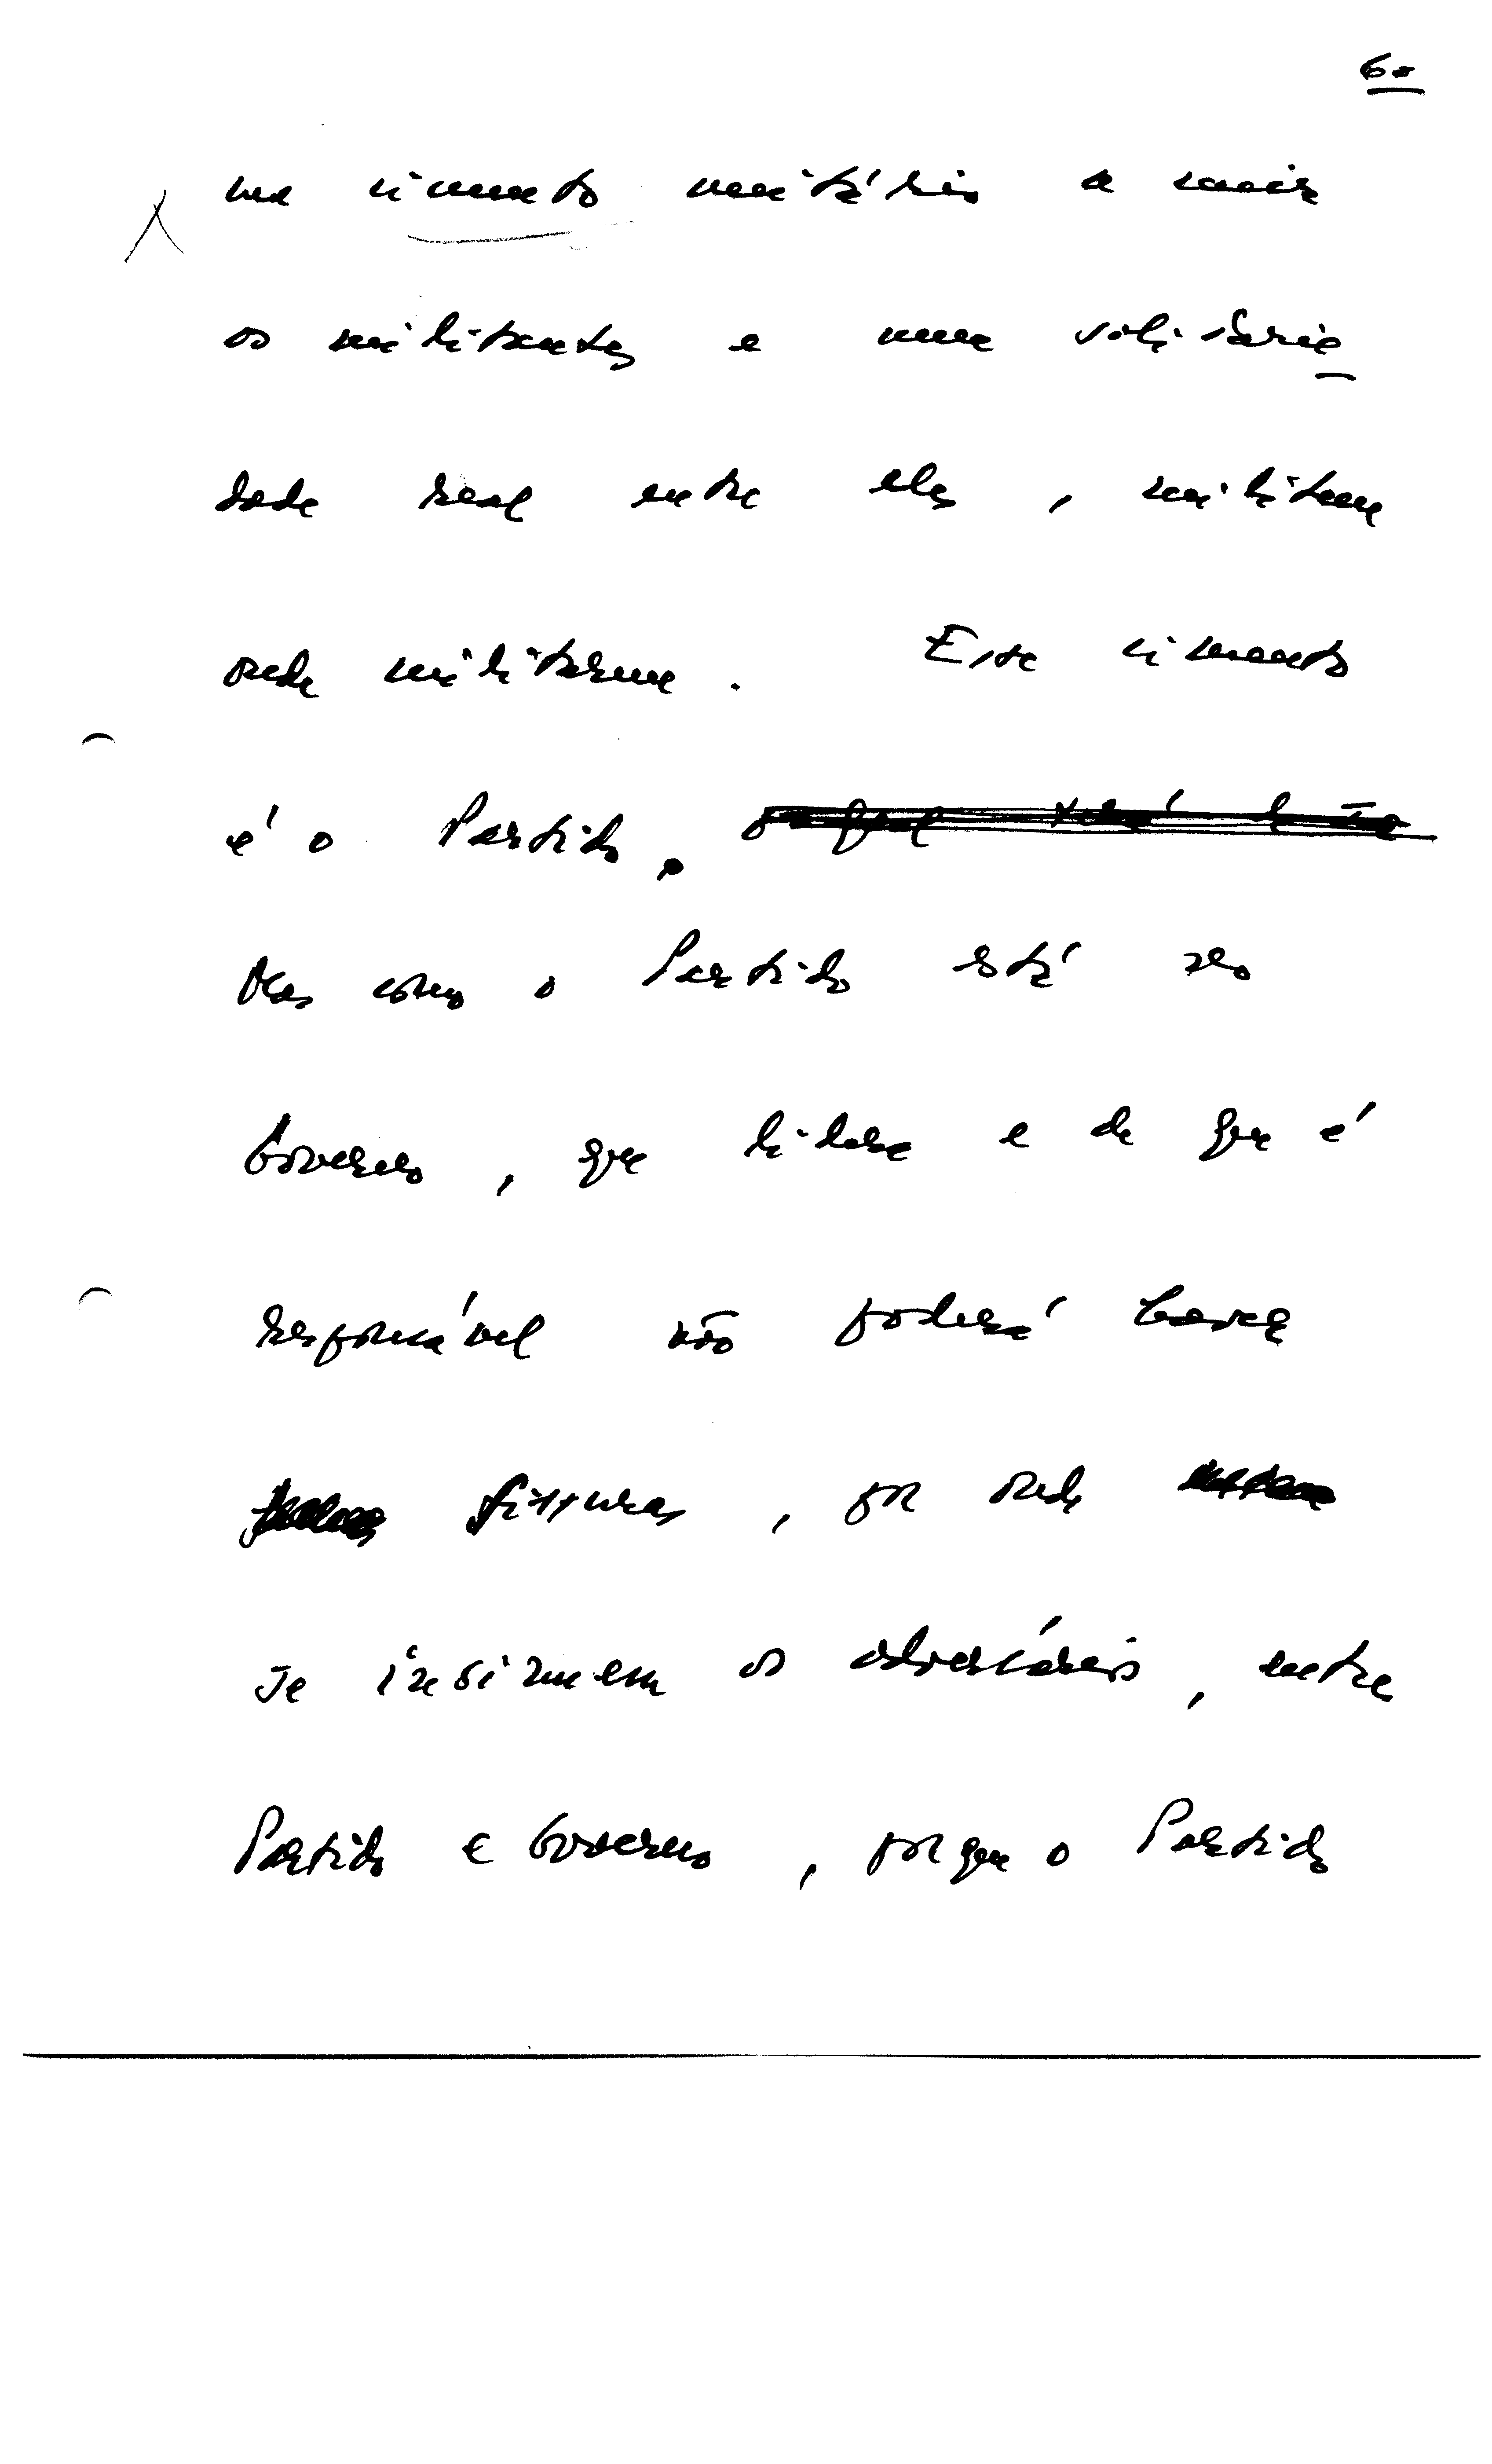 60
um cimento unitário a unir
os militantes e uma solidarie
dade real entre eles, militem
onde militarem. Esse cimento
é o Partido.
Mas como o Partido está no
Governo, que lidera e de que é
responsável não poderá haver
fissuras, por onde
se insinuem os adversários, entre
Partido e Governo, porque o Partido